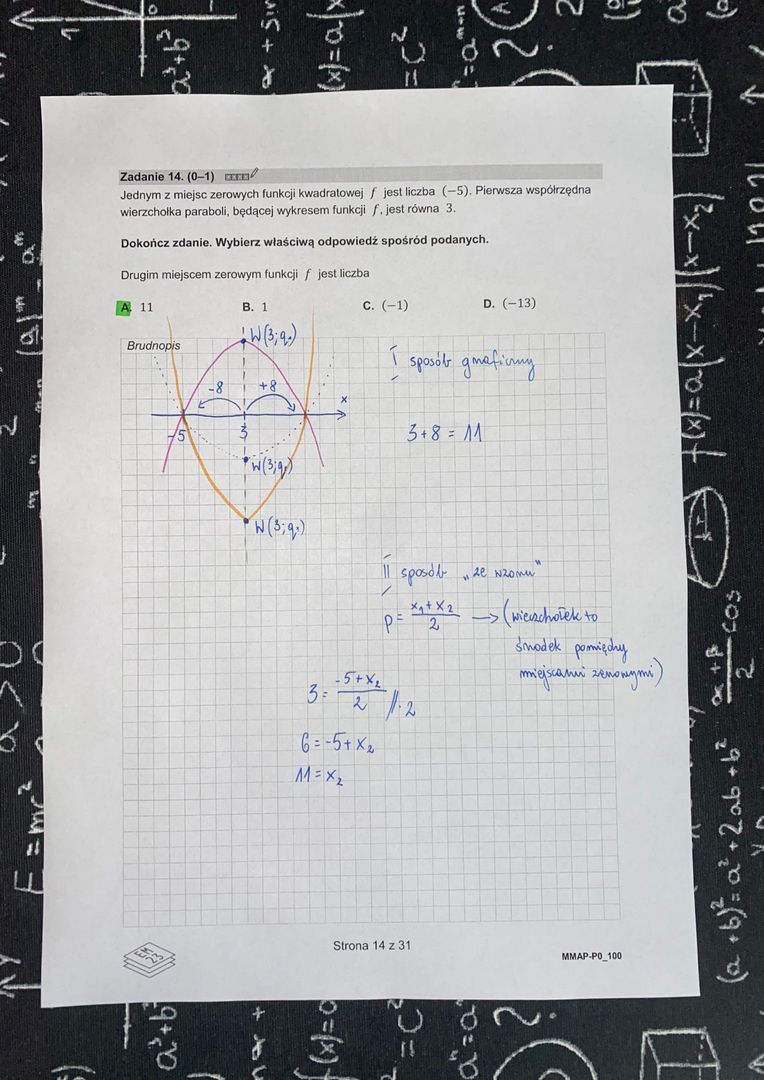 Zadanie 14. (0–1)
Jednym z miejsc zerowych funkcji kwadratowej f jest liczba (−5). Pierwsza współrzędna
wierzchołka paraboli, będącej wykresem funkcji f, jest równa 3.
Dokończ zdanie. Wybierz właściwą odpowiedź spośród podanych.
Drugim miejscem zerowym funkcji f jest liczba
A. 11 B. 1 C. (−1) D. (−13)
Brudnopis
W(3;q₁)
-8 +8
x
-5 3
W(3;q)
W(3;q)
I sposób graficzny
3+8 = 11
II sposób „ze wzoru"
p = (x₁+x₂)/2 → (wierzchołek to
środek pomiędzy
miejscami zerowymi)
3 = (-5+x₂)/2 //·2
6 = -5+x₂
11 = x₂
Strona 14 z 31
MMAP-P0_100
EM
23
E=mc²
a>0
f(x)=a(x-x₁)(x-x₂)
(a+b)²=a²+2ab+b²
α+β
2
cos